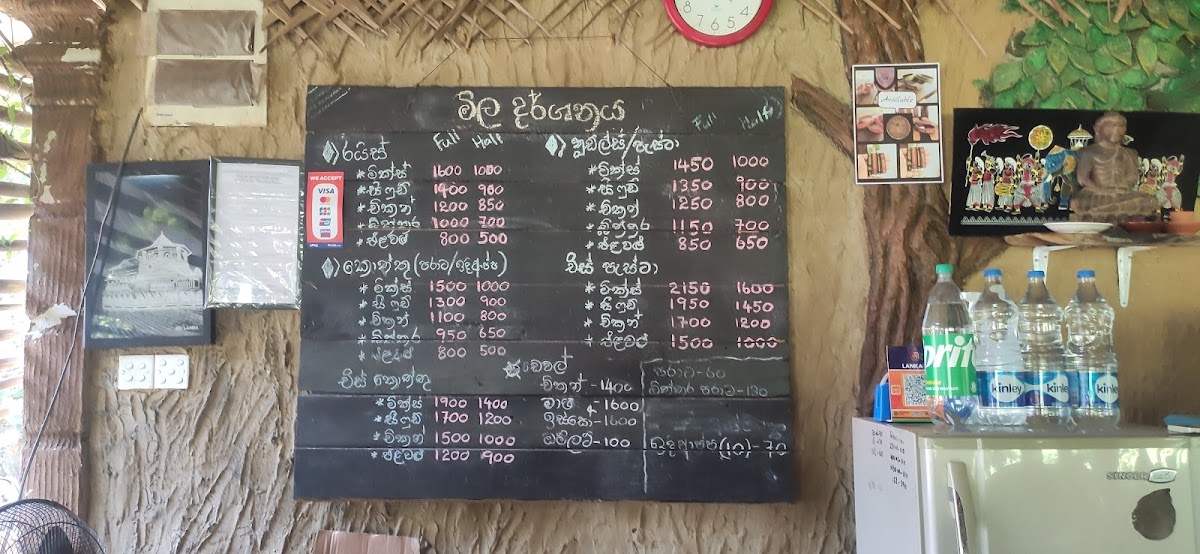 මිල දර්ශනය
රයිස් Full Half
* මික්ස් 1600 1000
* සී ෆුඩ් 1400 900
* චිකන් 1200 850
* බිත්තර 1000 700
* එළවළු 800 500
කොත්තු (පරාට/ඉඳිආප්ප)
* මික්ස් 1500 1000
* සී ෆුඩ් 1300 900
* චිකන් 1100 800
* බිත්තර 950 650
* එළවළු 800 500
චීස් කොත්තු
* මික්ස් 1900 1400
* සීෆුඩ් 1700 1200
* චිකන් 1500 1000
* එළවළු 1200 900
නූඩ්ල්ස්/පැස්ටා Full Half
* මික්ස් 1450 1000
* සී ෆුඩ් 1350 900
* චිකන් 1250 800
* බිත්තර 1150 700
* එළවළු 850 650
චීස් පැස්ටා
* මික්ස් 2150 1600
* සී ෆුඩ් 1950 1450
* චිකන් 1700 1200
* එළවළු 1500 1000
ඩෙවල්
චිකන් - 1400
මාළු - 1600
ඉස්සෝ - 1600
ඔම්ලට් - 100
පරාට - 60
බිත්තර පරාට - 130
ඉඳිආප්ප (10) - 70
WE ACCEPT
VISA
Available
8 7 6 5 4
LANKA
Kinley
kinley
kin
K
SINGER